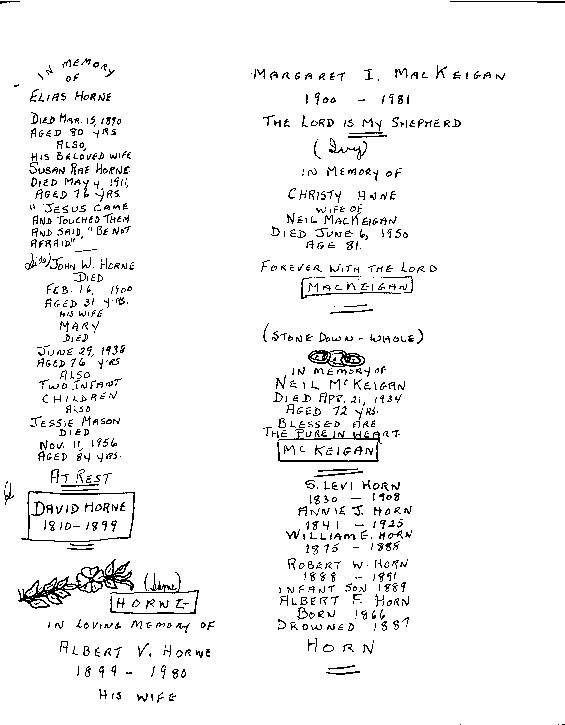 IN MEMORY
OF
ELIAS HORNE
DIED MAR. 15, 1890
AGED 80 YRS
ALSO,
HIS BELOVED WIFE
SUSAN RAE HORNE
DIED MAY 4, 1911,
AGED 76 YRS.
"JESUS CAME
AND TOUCHED THEM
AND SAID, "BE NOT
AFRAID"
JOHN W. HORNE
DIED
FEB. 16, 1900
AGED 31 YRS.
HIS WIFE
MARY
DIED
JUNE 29, 1938
AGED 76 YRS
ALSO
TWO INFANT
CHILDREN
ALSO
JESSIE MASON
DIED
NOV. 11, 1956
AGED 84 YRS.
AT REST
DAVID HORNE
1810-1899
HORNE
IN LOVING MEMORY OF
ALBERT V. HORNE
1899 - 1980
HIS WIFE
MARGARET I. MACKEIGAN
1900 - 1981
THE LORD IS MY SHEPHERD
(Ivy)
IN MEMORY OF
CHRISTY ANNE
WIFE OF
NEIL MACKEIGAN
DIED JUNE 6, 1950
AGE 81.
FOREVER WITH THE LORD
MACKEIGAN
(STONE DOWN - WHOLE)
IN MEMORY OF
NEIL MCKEIGAN
DIED APR. 21, 1934
AGED 72 YRS.
BLESSED ARE
THE PURE IN HEART.
MCKEIGAN
S. LEVI HORN
1830 - 1908
ANNIE J. HORN
1841 - 1925
WILLIAM E. HORN
1875 - 1885
ROBERT W. HORN
1888 - 1891
INFANT SON 1889
ALBERT F. HORN
BORN 1866
DROWNED 1887
HORN